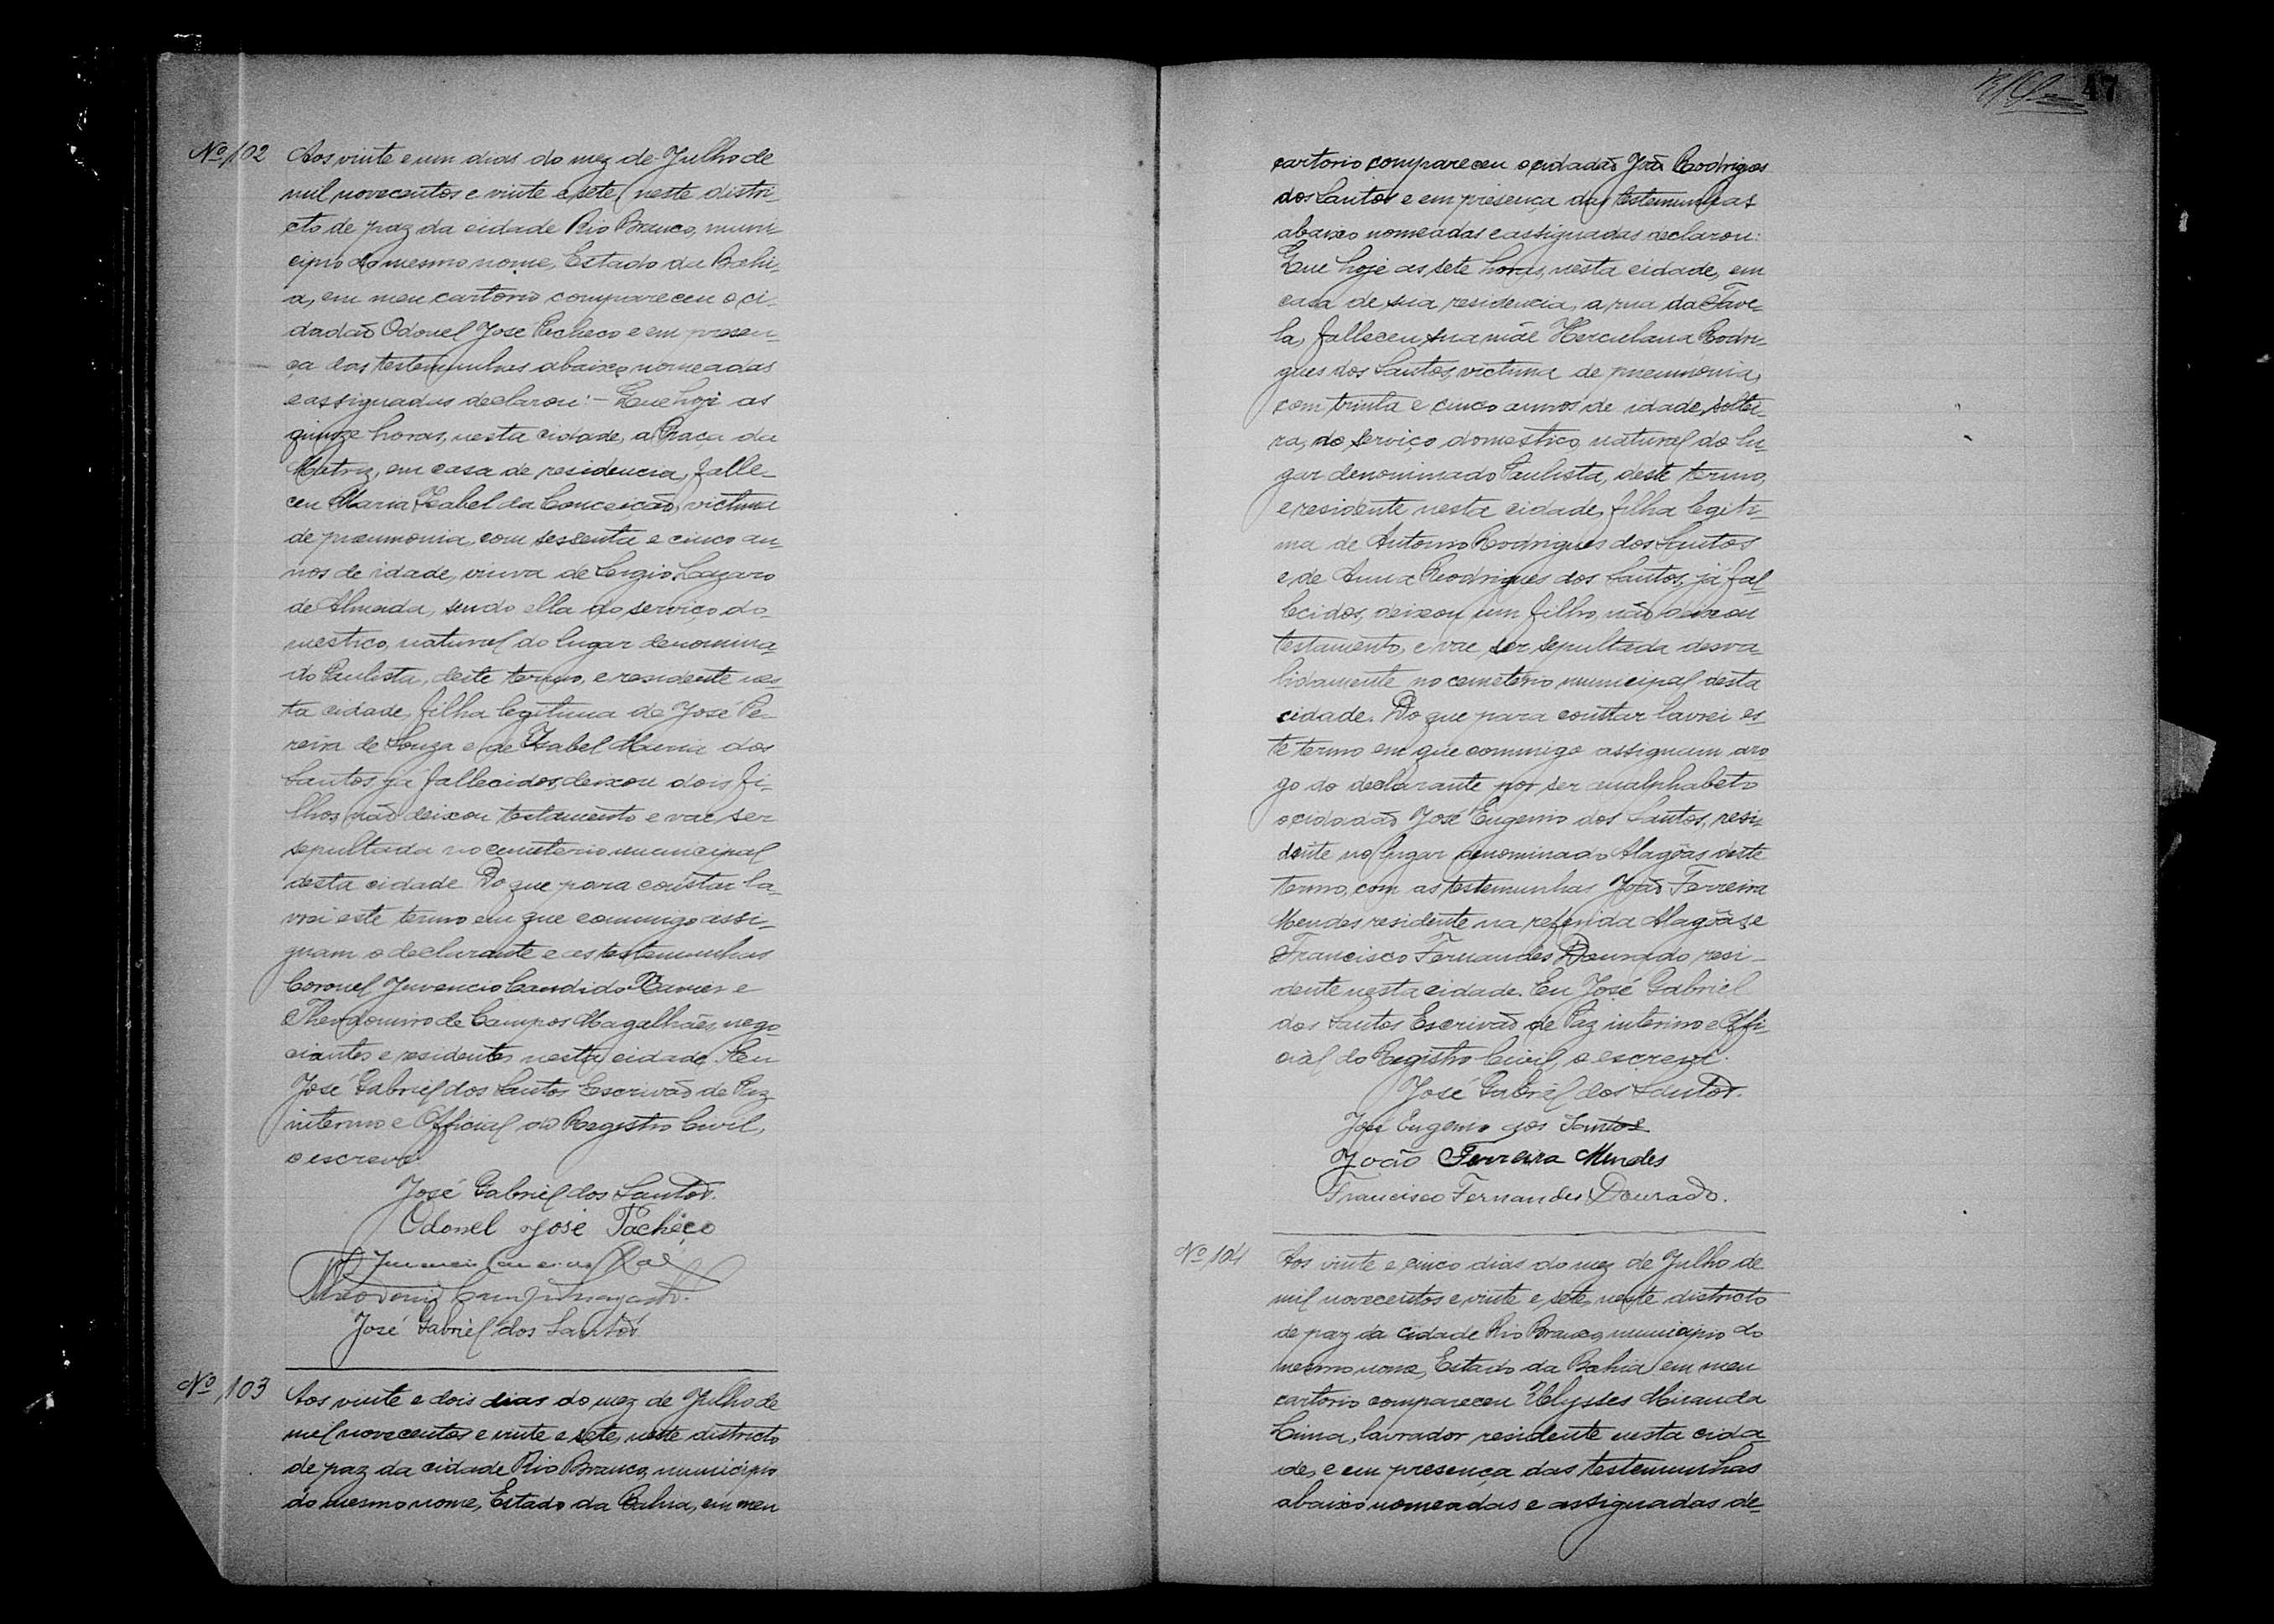 Nº 102 Aos vinte e um dias do mez de Julho de
mil novecentos e vinte e sete, neste distri-
cto de paz da cidade Rio Branco, muni-
cipio do mesmo nome, Estado da Bahi-
a, em meu cartorio compareceu o ci-
dadão Odonel José Pacheco e em presen-
ça das testemunhas abaixo nomeadas
e assignadas declarou:- Que hoje as
quinze horas, nesta cidade, a Praça da
Matriz, em casa de residencia, falle-
ceu Maria Izabel da Conceição, victima
de pneumonia, com sessenta e cinco an-
nos de idade, viuva de Sergio Lazaro
de Almeida, sendo ella do serviço do-
mestico, natural do lugar denomina-
do Paulista, deste termo, e residente nes-
ta cidade, filha legitima de José Pe-
reira de Souza e de Izabel Maria dos
Santos já fallecidos, deixou dois fi-
lhos, não deixou testamento e vae ser
sepultada no cemiterio municipal
desta cidade. Do que para constar la-
vrei este termo em que commigo assi-
gnam o declarante e as testemunhas
Coronel Juvencio Candido Xavier e
Theodomiro de Campos Magalhães, nego-
ciantes e residentes nesta cidade. Eu
José Gabriel dos Santos Escrivão de Paz
interino e Official do Registro Civil,
o escrevi.
José Gabriel dos Santos.
Odonel José Pacheco
José Gabriel dos Santos
Nº 103 Aos vinte e dois dias do mez de Julho de
mil novecentos e vinte e sete, neste districto
de paz da cidade Rio Branco, municipio
do mesmo nome, Estado da Bahia, em meu
47
cartorio compareceu o cidadão João Rodrigues
dos Santos e em presença das testemunhas
abaixo nomeadas e assignadas declarou:
Que hoje as sete horas, nesta cidade, em
casa de sua residencia, a rua da Fave-
la, falleceu sua mãe Herculana Rodri-
gues dos Santos, victima de pneumonia,
com trinta e cinco annos de idade, soltei-
ra, do serviço domestico, natural do lu-
gar denominado Paulista, deste termo,
e residente nesta cidade, filha legiti-
ma de Antonio Rodrigues dos Santos
e de Anna Rodrigues dos Santos, já fal-
lecidos, deixou um filho, não deixou
testamento, e vae ser sepultada desva-
lidamente no cemeterio municipal desta
cidade. Do que para constar lavrei es-
te termo em que commigo assignam aro
go do declarante por ser analphabeto
o cidadão José Eugenio dos Santos, resi-
dente no lugar denominado Alagôas deste
termo, com as testemunhas João Ferreira
Mendes residente na referida Alagôas, e
Francisco Fernandes Dourado resi-
dente nesta cidade. Eu José Gabriel
dos Santos Escrivão de Paz interino e Offi-
cial do Registro Civil, o escrevi.
José Gabriel dos Santos.
José Eugenio dos Santos
João Ferreira Mendes
Francisco Fernandes Dourado.
Nº 104 Aos vinte e cinco dias do mez de Julho de
mil novecentos e vinte e sete, neste districto
de paz da cidade Rio Branco, municipio do
mesmo nome, Estado da Bahia, em meu
cartorio compareceu Ulysses Miranda
Lima, lavrador residente nesta cida-
de, e em presença das testemunhas
abaixo nomeadas e assignadas de-